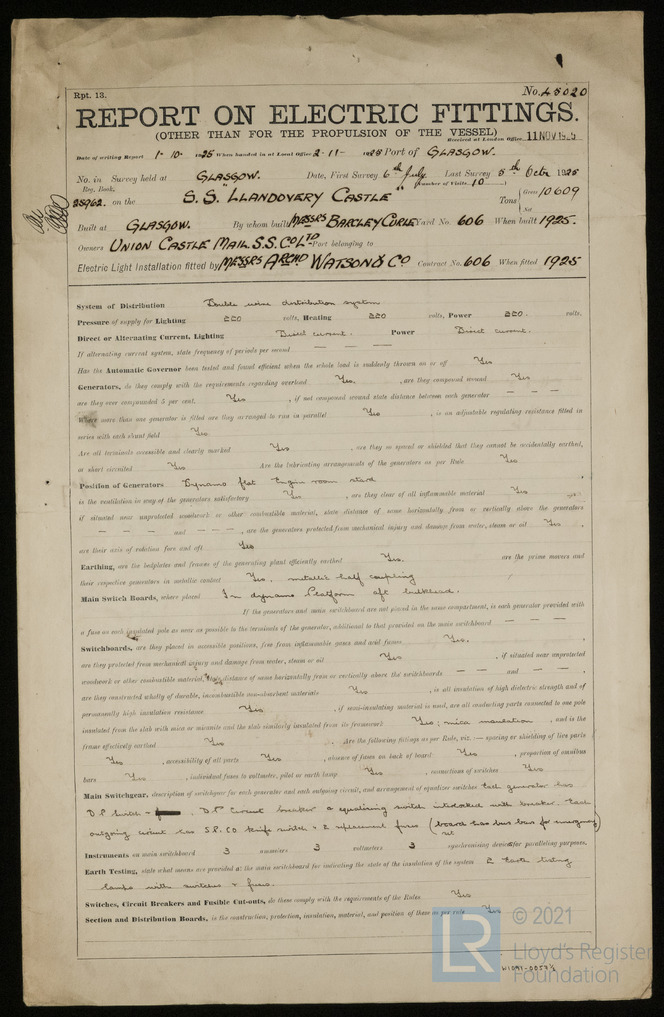 Rpt. 13.
No. 45020
REPORT ON ELECTRIC FITTINGS.
(OTHER THAN FOR THE PROPULSION OF THE VESSEL)
Received at London Office 11 NOV 1925
Date of writing Report 1-10-1925 When handed in at Local Office 2-11-1925 Port of GLASGOW.
No. in Survey held at GLASGOW. Date, First Survey 6th July Last Survey 5th Octr 1925
Reg. Book. (Number of Visits 10)
28962. on the S.S. "LLANDOVERY CASTLE" Tons { Gross 10609
Net
Built at GLASGOW. By whom built MESSRS BARCLEY CURLE Yard No. 606 When built 1925.
Owners UNION CASTLE MAIL S.S. CO LTD Port belonging to
Electric Light Installation fitted by MESSRS ARCHD WATSON & CO Contract No. 606 When fitted 1925
System of Distribution Double wire distribution system
Pressure of supply for Lighting 220 volts, Heating 220 volts, Power 220 volts.
Direct or Alternating Current, Lighting Direct current. Power Direct current.
If alternating current system, state frequency of periods per second — — —
Has the Automatic Governor been tested and found efficient when the whole load is suddenly thrown on or off Yes
Generators, do they comply with the requirements regarding overload Yes. , are they compound wound Yes
are they over compounded 5 per cent. Yes , if not compound wound state distance between each generator — — —
Where more than one generator is fitted are they arranged to run in parallel Yes , is an adjustable regulating resistance fitted in
series with each shunt field Yes
Are all terminals accessible and clearly marked Yes , are they so spaced or shielded that they cannot be accidentally earthed,
or short circuited Yes Are the lubricating arrangements of the generators as per Rule Yes
Position of Generators Dynamo flat Engine room stard
is the ventilation in way of the generators satisfactory Yes , are they clear of all inflammable material Yes
if situated near unprotected woodwork or other combustible material, state distance of same horizontally from or vertically above the generators
— — — and — — — , are the generators protected from mechanical injury and damage from water, steam or oil Yes ,
are their axis of rotation fore and aft Yes
Earthing, are the bedplates and frames of the generating plant efficiently earthed Yes. are the prime movers and
their respective generators in metallic contact Yes. metallic half coupling
Main Switch Boards, where placed In dynamo Platform aft bulkhead.
If the generators and main switchboard are not placed in the same compartment, is each generator provided with
a fuse on each insulated pole as near as possible to the terminals of the generator, additional to that provided on the main switchboard — — —
Switchboards, are they placed in accessible positions, free from inflammable gases and acid fumes Yes. ,
are they protected from mechanical injury and damage from water, steam or oil Yes , if situated near unprotected
woodwork or other combustible material, state distance of same horizontally from or vertically above the switchboards — — and — — ,
are they constructed wholly of durable, incombustible non-absorbent materials Yes , is all insulation of high dielectric strength and of
permanently high insulation resistance Yes. , if semi-insulating material is used, are all conducting parts connected to one pole
insulated from the slab with mica or micanite and the slab similarly insulated from its framework Yes; mica insulation , and is the
frame effectively earthed Yes . Are the following fittings as per Rule, viz.:— spacing or shielding of live parts
Yes , accessibility of all parts Yes , absence of fuses on back of board Yes , proportion of omnibus
bars Yes , individual fuses to voltmeter, pilot or earth lamp Yes , connections of switches Yes
Main Switchgear, description of switchgear for each generator and each outgoing circuit, and arrangement of equalizer switches Each generator has
D.P. Switch, D.P. Circuit breaker & equalising switch interlocked with breaker. Each
outgoing circuit has S.P.C.O knife switch & 2 replacement fuses (board has bus bars for emergency set)
Instruments on main switchboard 3 ammeters 3 voltmeters 3 synchronising devices for paralleling purposes.
Earth Testing, state what means are provided at the main switchboard for indicating the state of the insulation of the system 2 Earth testing
lamps with switches & fuses.
Switches, Circuit Breakers and Fusible Cut-outs, do these comply with the requirements of the Rules Yes
Section and Distribution Boards, is the construction, protection, insulation, material, and position of these as per rule Yes
LR
© 2021
Lloyd's Register
Foundation